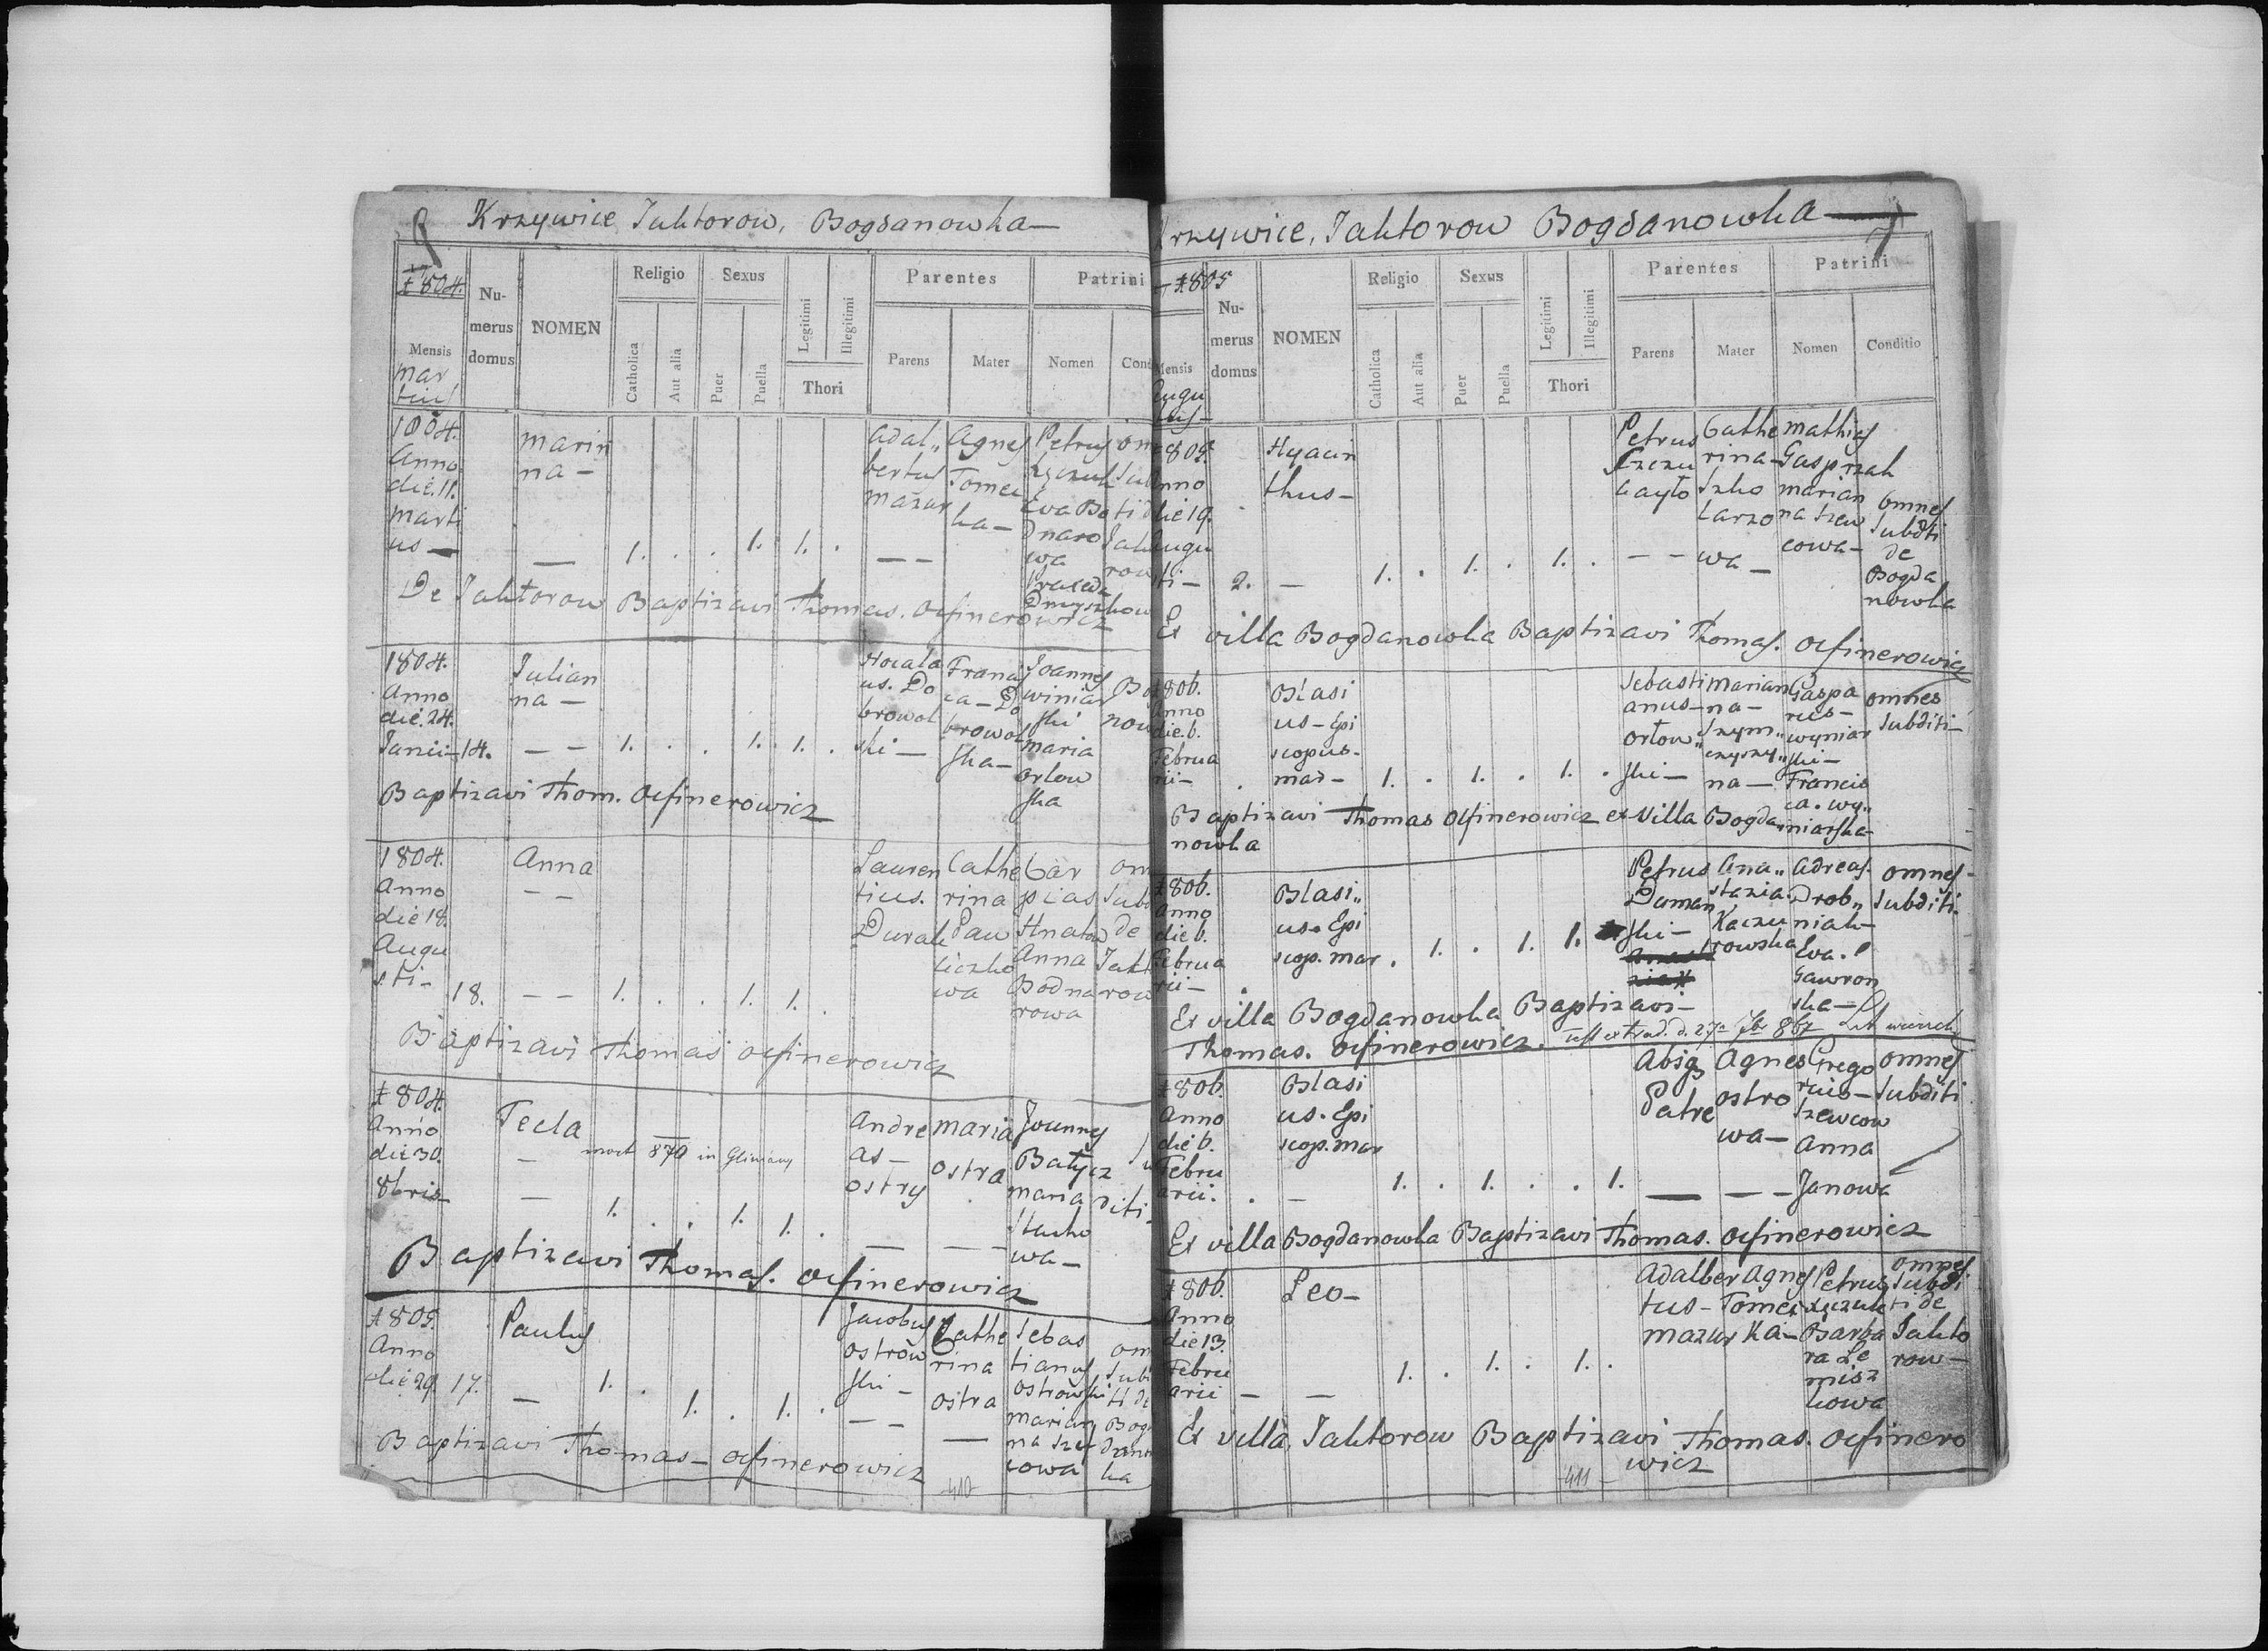 Krzywice Jaktorow, Bogdanowka
1804.
Mensis
Martius
Numerus domus
NOMEN
Religio
Catholica
Aut alia
Sexus
Puer
Puella
Legitimi
Illegitimi
Thori
Parentes
Parens
Mater
Patrini
Nomen
1804. Anno die. 11. Marti us —
Marin na —
1. . . 1. 1. .
Adal„ bertus Mazur
Agnes Tomei ka —
Petrus
Eva Bo dnaro wa
De Jaktorow Baptizavi Thomas. Ocfinerowicz
1804. Anno die. 24. Junii — 14.
Julian na —
— — 1. . . 1. 1. .
us. Do browol ski —
Do browol ska —
Joannes winiar ski
Maria Orlow ska
Baptizavi Thom. Ocfinerowicz
1804. Anno die 18. Augu sti —
18.
Anna
— — 1. . . 1. 1. .
Lauren tius. Durak
Cathe rina Paw liczko wa
Anna Bodna rowa
Baptizavi Thomas Ocfinerowicz
1804. Anno die 30. 8bris
Tecla
mort 870 in Gliniany
1. . . 1. 1. .
Andre as — Ostry
Maria Ostra
Joannes Batycz
Maria Stacho wa —
Baptizavi Thomas. Ocfinerowicz
1805. Anno die 29.
17.
Paulus
— 1. . 1. . 1. .
Jacobus Ostrow ski —
Cathe rina Ostra
Sebas tianus Ostrowski
Marian na Szef cowa
Baptizavi Thomas — Ocfinerowicz
410
Krzywice, Jaktorow Bogdanowka
7
1805
Mensis
Augu
Numerus domus
NOMEN
Religio
Catholica
Aut alia
Sexus
Puer
Puella
Legitimi
Illegitimi
Thori
Parentes
Parens
Mater
Patrini
Nomen
Conditio
1805. Anno die 19. Augu sti —
2.
Hyacin thus —
— 1. . 1. . 1. .
Petrus
Cathe rina — Szko larzo wa —
Mathias Gasprzak
Marian na Szew cowa —
Omnes Subditi de Bogda nowka
Ex villa Bogdanowka Baptizavi Thomas. Ocfinerowicz
1806. Anno die. 6. Februa rii —
Blasi us — Epi scopus — mar —
1. . 1. . 1. .
Sebasti anus — Orlow„ ski —
Marian na — Szym„ czyszy„ na —
Gaspa rus — wyniar ski —
Francis ca. wy„ niarska —
omnes Subditi —
Baptizavi Thomas Ocfinerowicz ex Villa Bogda nowka
1806. Anno die 6. Februa rii —
Blasi„ us. Epi scop. mar .
1. . 1. 1.
Petrus Duman ski —
Ana„ stazia. Kaczu rowska
Adreas. Drob„ niak —
Eva. Gawron ska —
omnes — Subditi.
Ex villa Bogdanowka Baptizavi —
Thomas. Ocfinerowicz.
1806. Anno die 6. Febru arii. .
Blasi us. Epi scop. mar
— 1. . 1. . . 1.
Absq Patre
Agnes Ostro wa —
Grego rius — Szewcow
Anna Janowa
omnes Subditi
Ex villa Bogdanowka Baptizavi Thomas. Ocfinerowicz
1806. Anno die 13. Febru arii —
Leo —
— 1. . 1. . 1. .
Adalber tus — Mazur
Agnes Tomei Ka —
Petrus
Barba ra Le misz kowa
omnes Subdi ti de Jakto row —
Ex villa, Jaktorow Baptizavi Thomas. Ocfinero wicz
411